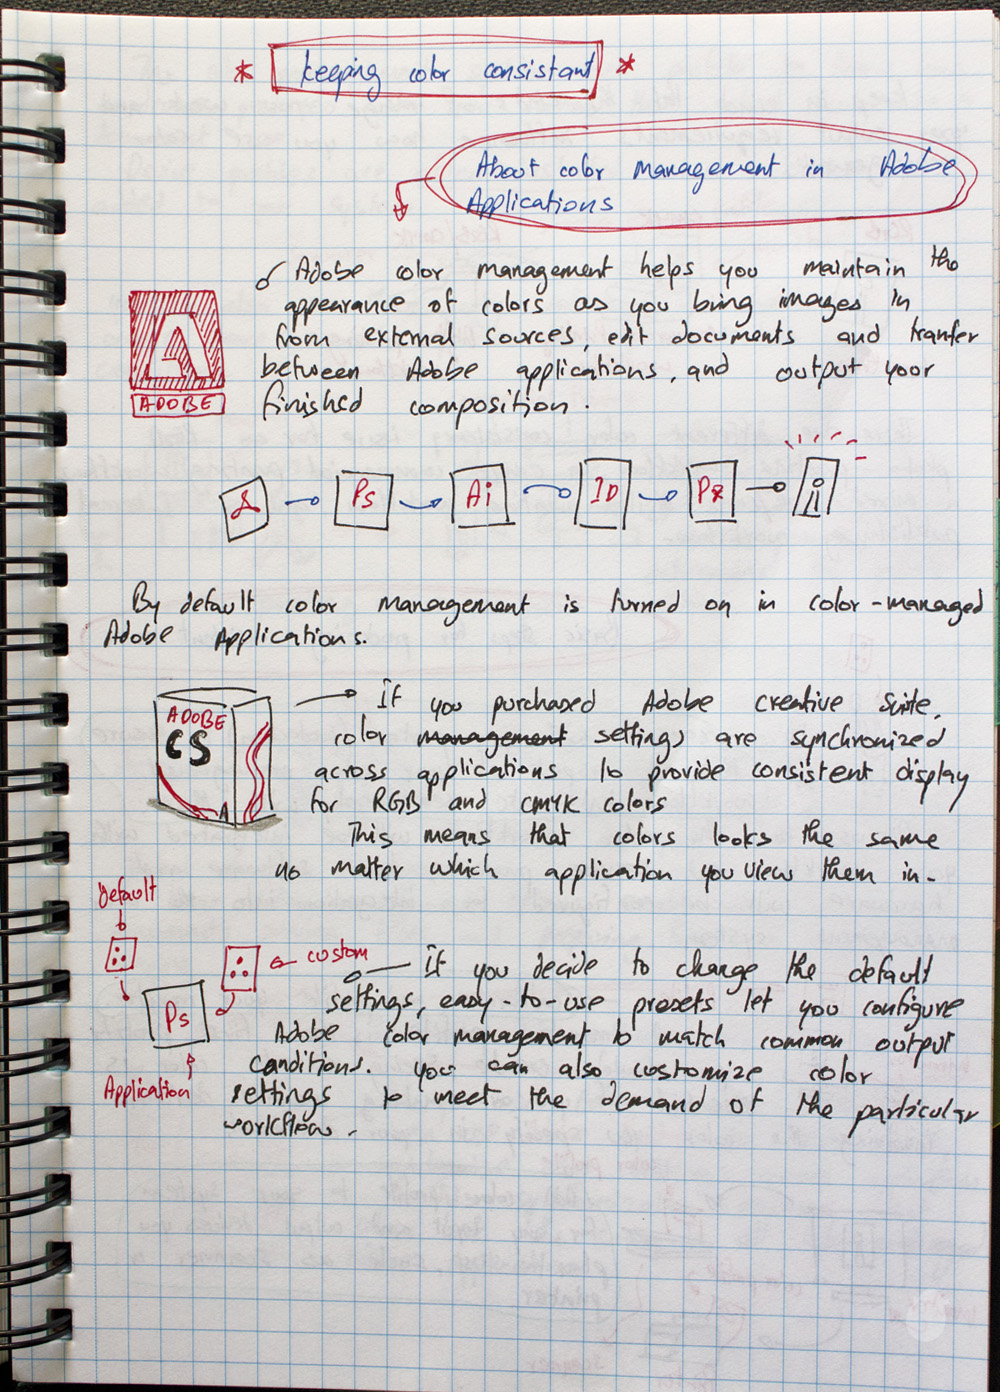 * keeping color consistant *
About color management in Adobe
Applications
Adobe color management helps you maintain the
appearance of colors as you bring images in
from external sources, edit documents and tranfer
between Adobe applications, and output your
finished composition.
ADOBE
Ps
Ai
ID
By default color management is turned on in color-managed
Adobe Applications.
ADOBE
CS
If you purchased Adobe creative suite,
color management settings are synchronized
across applications to provide consistent display
for RGB and CMYK colors
This means that colors looks the same
no matter which application you view them in.
Default
custom
Ps
Application
If you decide to change the default
settings, easy-to-use presets let you configure
Adobe color management to match common output
conditions. you can also customize color
settings to meet the demand of the particular
workflow.